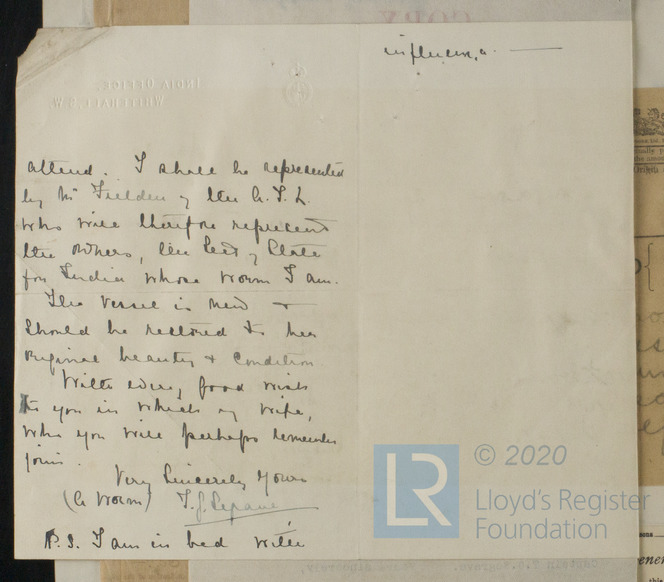 influenza.
attend. I shall be represented
by Mr Fielden of the
who will therefore represent
the owners, the Sect of State
for India whose worm I am.
The vessel is new &
should be restored to her
original beauty & condition
With every good wish
to you in which my wife,
who you will perhaps remember
joins.
Very Sincerely Yours
(A Worm)
P.S. I am in bed with
INDIA OFFICE,
WHITEHALL, S.W.
COPY
LR
© 2020
Lloyd's Register
Foundation